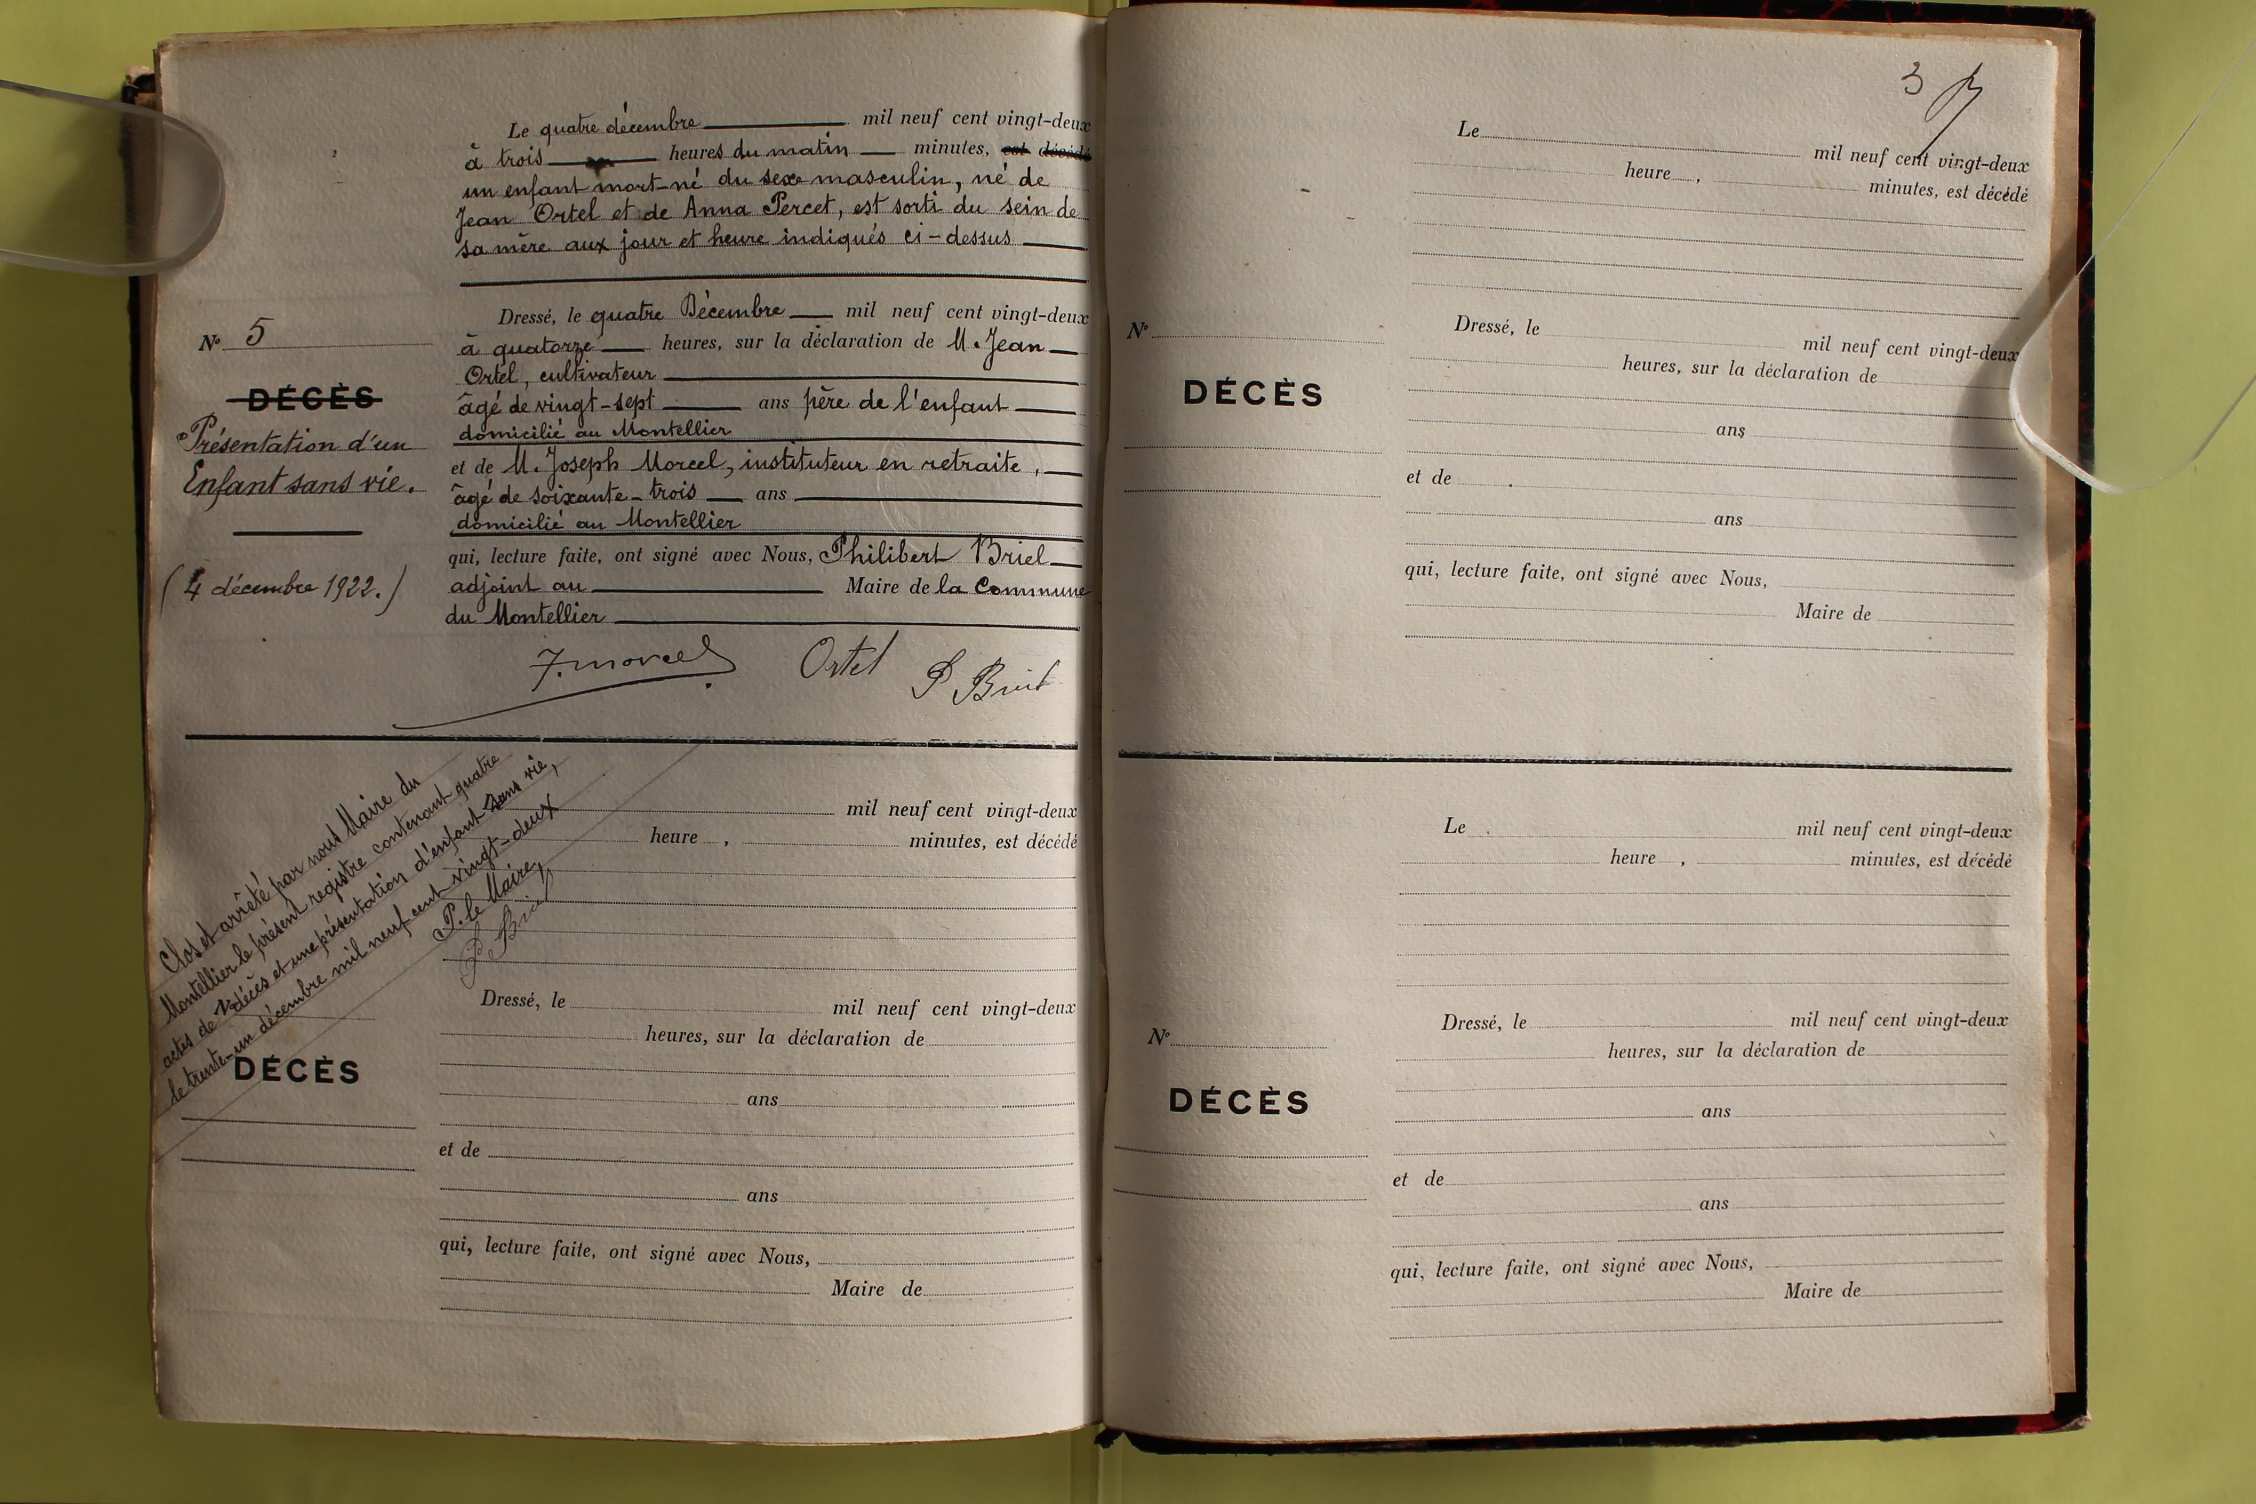 Le quatre décembre mil neuf cent vingt-deux
à trois heures du matin minutes, est décédé
un enfant mort-né du sexe masculin, né de
Jean Ortel et de Anna Percet, est sorti du sein de
sa mère aux jour et heure indiqués ci-dessus
N° 5
DÉCÈS
Présentation d'un
Enfant sans vie.
(4 décembre 1922.)
Dressé, le quatre Décembre mil neuf cent vingt-deux
à quatorze heures, sur la déclaration de M. Jean
Ortel, cultivateur
âgé de vingt-sept ans père de l'enfant
domicilié au Montellier
et de M. Joseph Morcel, instituteur en retraite,
âgé de soixante-trois ans
domicilié au Montellier
qui, lecture faite, ont signé avec Nous, Philibert Briel
adjoint au Maire de la Commune
du Montellier
J. morcel Ortel P Briel
Clos et arrêté par nous Maire du
Montellier le présent registre contenant quatre
actes de décès et une présentation d'enfant sans vie,
le trente-un décembre mil neuf cent vingt-deux
P. le Maire,
P Briel
mil neuf cent vingt-deux
heure , minutes, est décédé
DÉCÈS
Dressé, le mil neuf cent vingt-deux
heures, sur la déclaration de
ans
et de
ans
qui, lecture faite, ont signé avec Nous,
Maire de
3
Le mil neuf cent vingt-deux
heure , minutes, est décédé
N°
DÉCÈS
Dressé, le mil neuf cent vingt-deux
heures, sur la déclaration de
ans
et de
ans
qui, lecture faite, ont signé avec Nous,
Maire de
Le mil neuf cent vingt-deux
heure , minutes, est décédé
N°
DÉCÈS
Dressé, le mil neuf cent vingt-deux
heures, sur la déclaration de
ans
et de
ans
qui, lecture faite, ont signé avec Nous,
Maire de